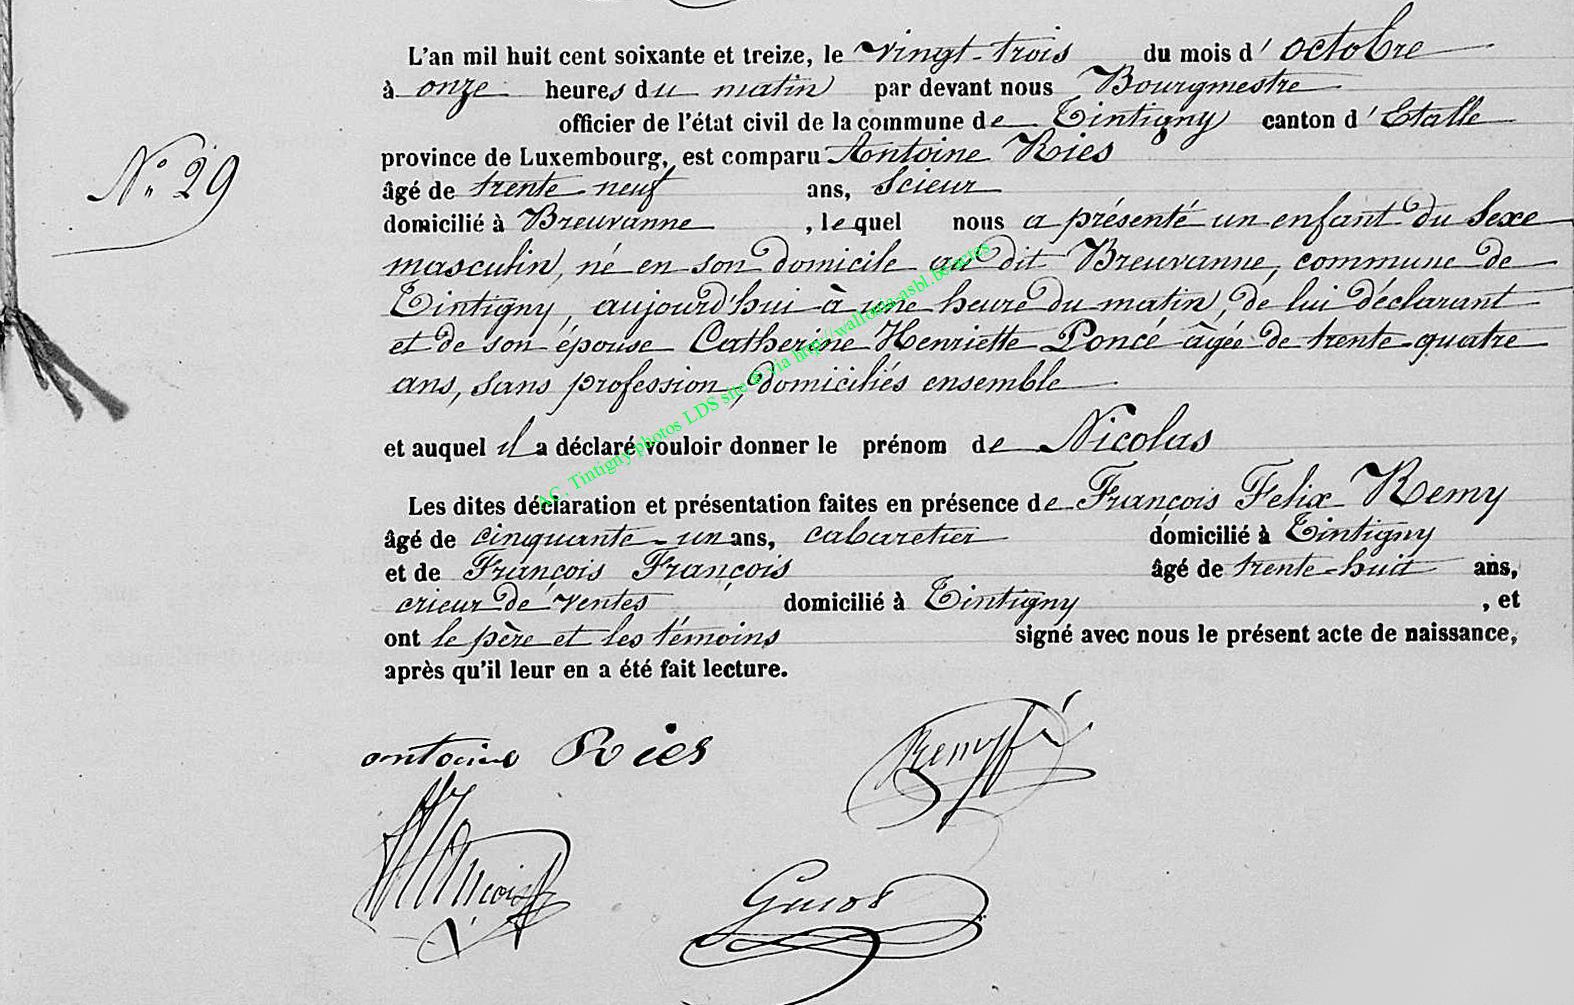 L'an mil huit cent soixante et treize, le vingt-trois du mois d' octobre
à onze heures du matin par devant nous Bourgmestre
officier de l'état civil de la commune de Tintigny canton d' Etalle
province de Luxembourg, est comparu Antoine Ries
N° 29
âgé de trente neuf ans, Scieur
domicilié à Breuvanne , lequel nous a présenté un enfant du Sexe
masculin, né en son domicile au dit Breuvanne, commune de
Tintigny, aujourd'hui à une heure du matin, de lui déclarant
et de son épouse Catherine Henriette Poncé âgée de trente-quatre
ans, sans profession, domiciliés ensemble
et auquel il a déclaré vouloir donner le prénom de Nicolas
AC. Tintigny photos LDS site & via http://wallonia-asbl.be/actes
Les dites déclaration et présentation faites en présence de François Felix Remy
âgé de cinquante-un ans, cabaretier domicilié à Tintigny
et de François François âgé de trente-huit ans,
crieur de ventes domicilié à Tintigny , et
ont le père et les témoins signé avec nous le présent acte de naissance,
après qu'il leur en a été fait lecture.
antoine Ries Remy f
François